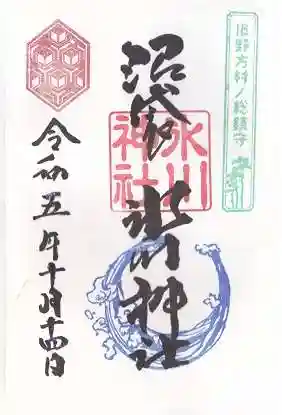 旧野方村ノ総鎮守
沼袋 氷川神社
氷川
神社
令和五年十月十四日